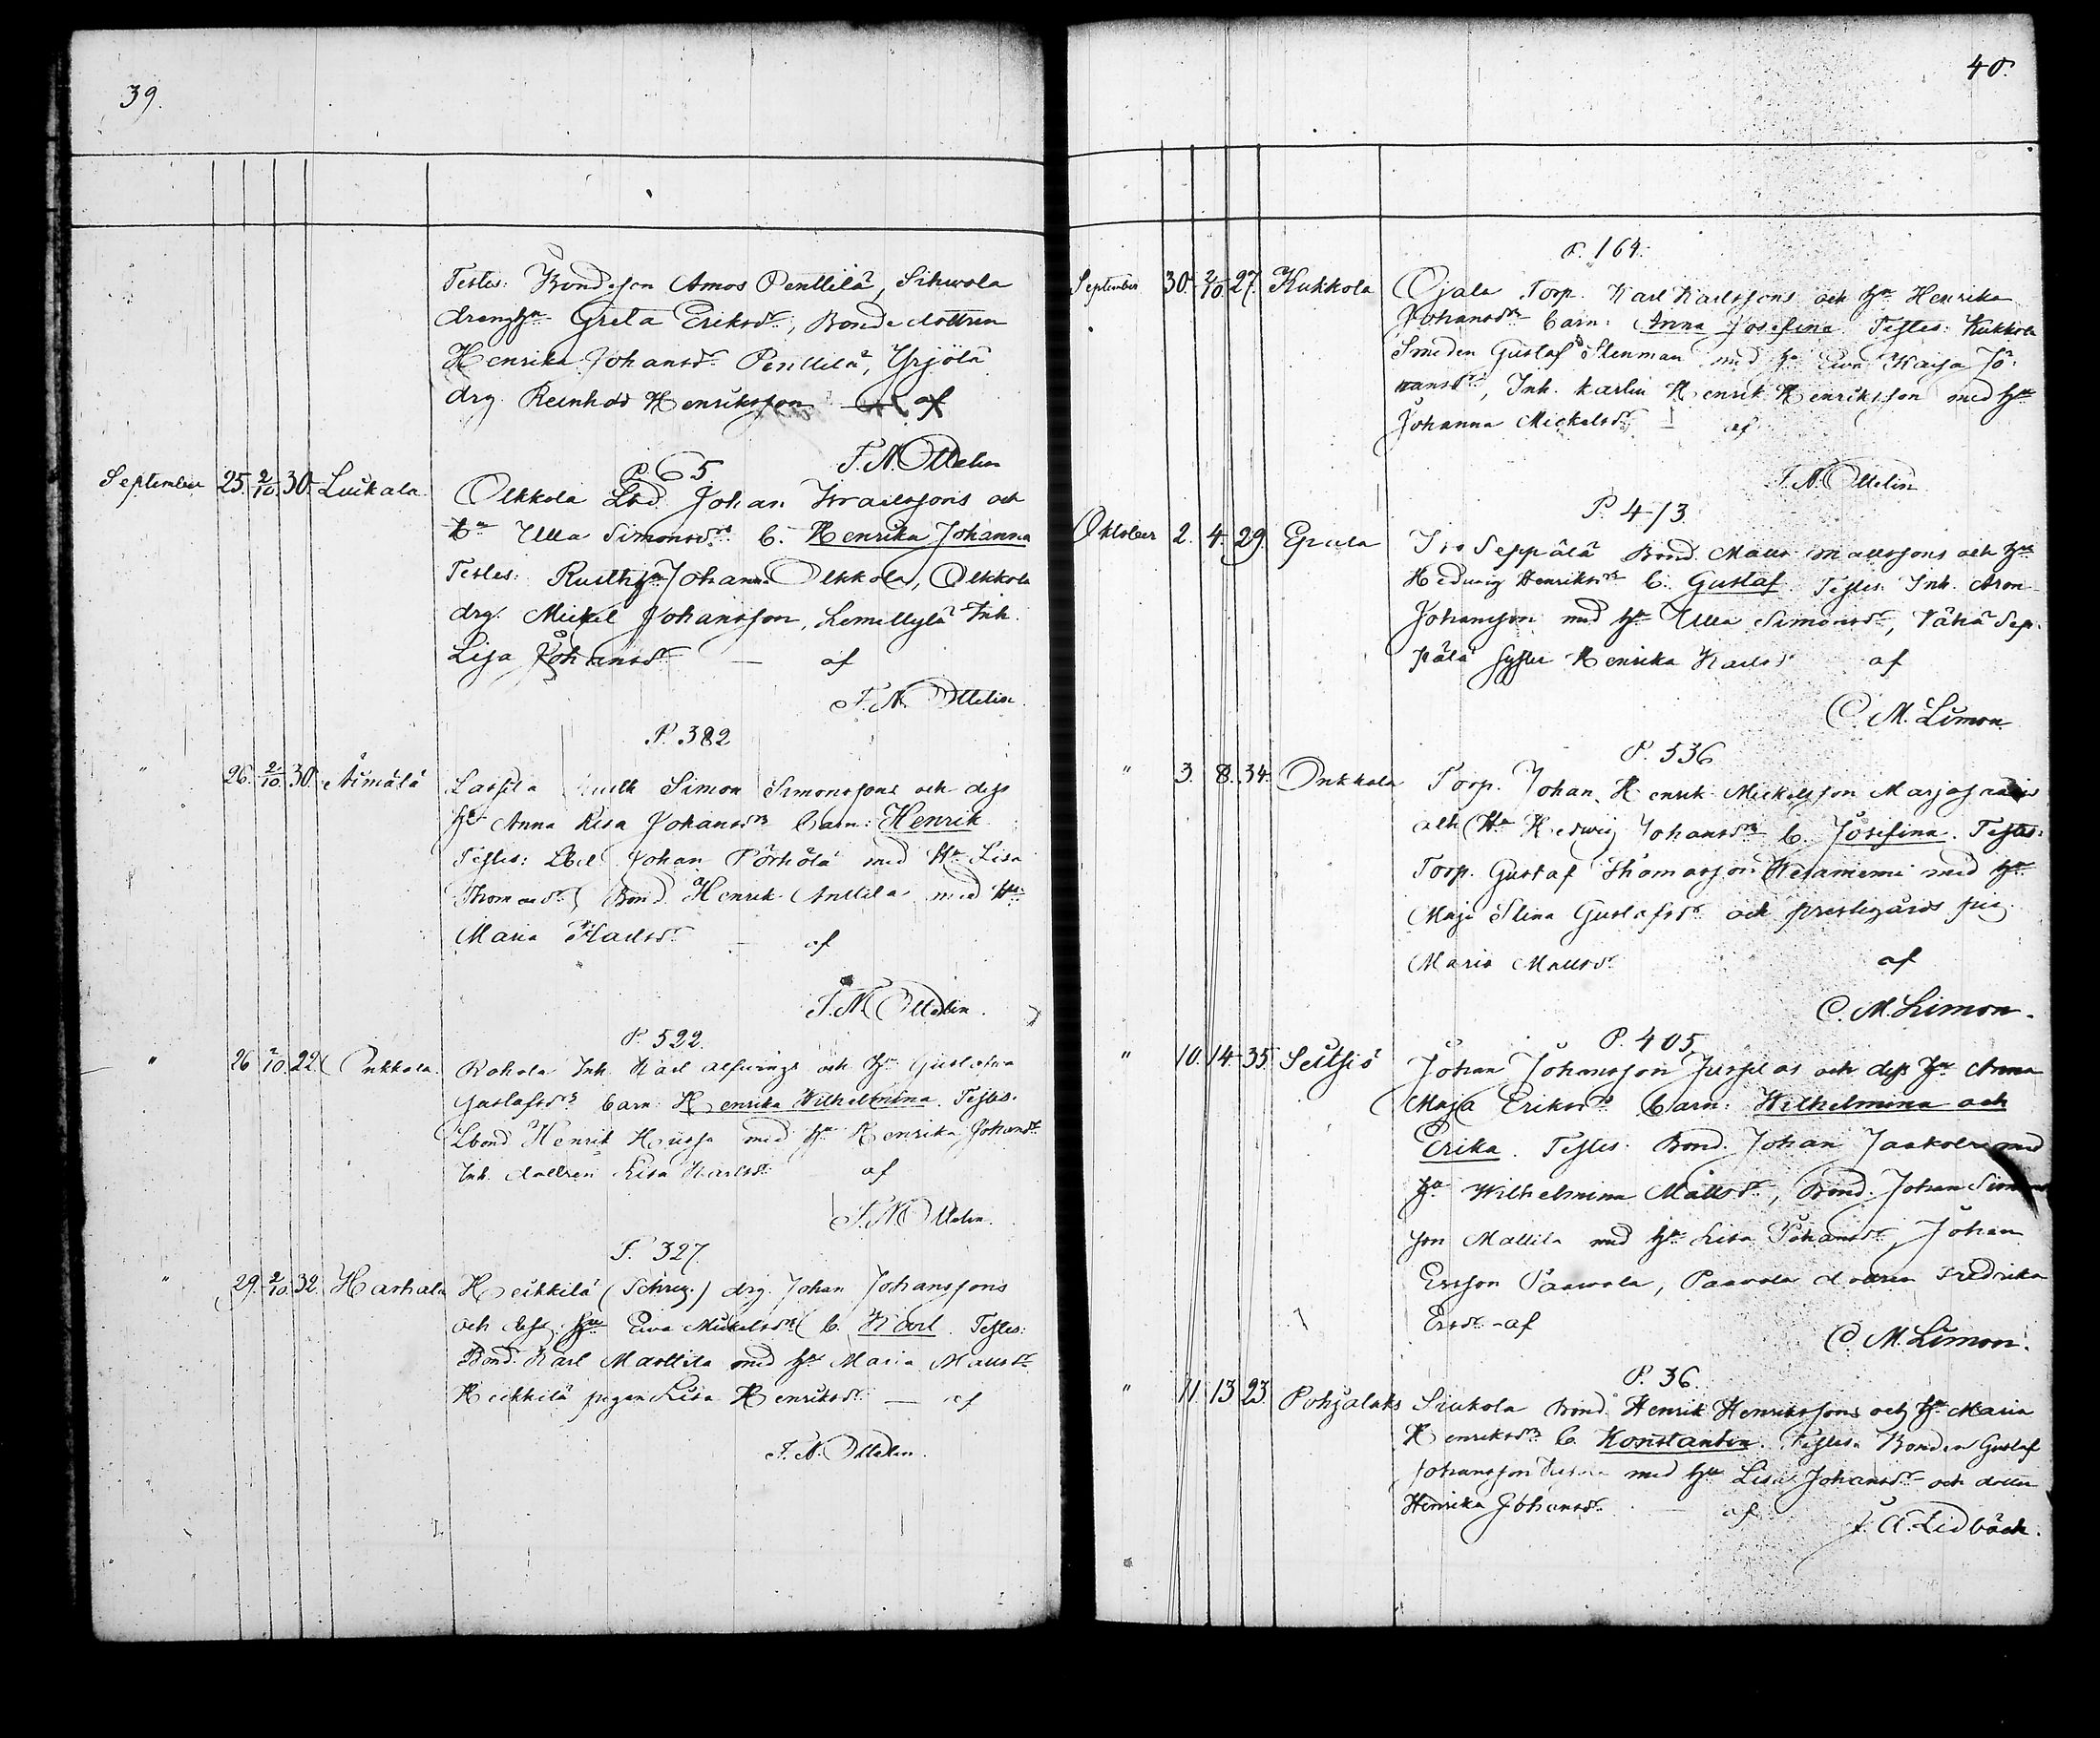 39.
Testes: Bondeson Amos Penttilä, Sihwola
drenghu Greta Eriksdr, Bondedottren
Henrika Johansdr Penttilä, Yrjölä
drg. Reinhold Henriksson af
F. N. Ottelin
P. 65
September 25. 2/10. 30. Luikala. Olkkola Lbd Johan Israelssons och
Hu Ulla Simonsdrs b. Henrika Johanna
Testes: Rusthhu Johanna Olkkola, Olkkola
drg. Mickel Johansson, Lemillylä Inh.
Lisa Johansdr — af
F. N. Ottelin
P. 382
" 26. 2/10. 30. Äimälä Lassila Rusth Simon Simonssons och dess
hu Anna Lisa Johansdrs barn: Henrik
Testes: Lbd Johan Pörhölä med Hu Lisa
Thomasdr, Bond. Henrik Anttila med Hu
Maria Karlsdr — af
F. N. Ottelin.
P. 522.
" 26 2/10. 22. Onkkola. Rohola Inh. Karl Alfwings och hu Gustafva
Gustafsdrs barn: Henrika Wilhelmina. Testes:
Lbond Henrik med hu Henrika Johansdr
Inh. dottren Lisa Karlsdr af
F. N. Ottelin.
P. 327.
" 29. 2/10. 32. Harhala Heikkilä (Schreg.) drg. Johan Johanssons
och dess hu Ewa Mickelsdrs b. Karl. Testes:
Bond. Karl Marttila med hu Maria Mattsdr
Heikkilä pigan Lisa Henriksdr — af
F. N. Ottelin.
40.
P. 164.
September 30. 2/10. 27. Kukkola Ojala Torp. Karl Karlssons och hu Henrika
Johansdrs barn: Anna Josefina Testes: Kukkola
Smeden Gustaf Stenman med hu Ewa Kaisa Jo-
hansdr, Inh. karlen Henrik Henriksson med hu
Johanna Mickelsdr — af
F. N. Ottelin
P. 473
Oktober 2. 4. 29. Eputa Iso Seppälä Bond. Matts Mattssons och hu
Hedwig Henriksdrs b. Gustaf Testes Inh. Aron
Johansson med hu Ulla Simonsdr, Vähä Sep-
pälä syster Henrika Karlsdr af
C. M. Limon
P. 536
" 3. 8. 34. Onkkola Torp. Johan Henrik Mickelsson
och Hu Hedwig Johansdrs b. Josefina. Testes:
Torp. Gustaf Thomasson med hu
Maja Stina Gustafsdr och prestegårds pig.
Maria Mattsdr af
C. M. Limon.
P. 405
" 10. 14. 35 Seitsiö Johan Johansson Jussilas och dess hu Anna
Maja Eriksdrs barn: Wilhelmina och
Erika. Testes: Bond. Johan Jaakola med
hu Wilhelmina Mattsdr, Bond. Johan Simons
son Mattila med hu Lisa Johansdr, Johan
Ersson Paawola, Paavola dottren Fredrika
Ersdr - af
C. M. Limon.
P. 36.
" 11. 13 23. Pohjalaks Siukola Bond. Henrik Henrikssons och hu Maria
Henriksdrs b. Konstantin. Testes: Bonden Gustaf
Johansson med hu Lisa Johansdr och dotter
Henrika Johansdr. — af
J. A. Lidbäck.